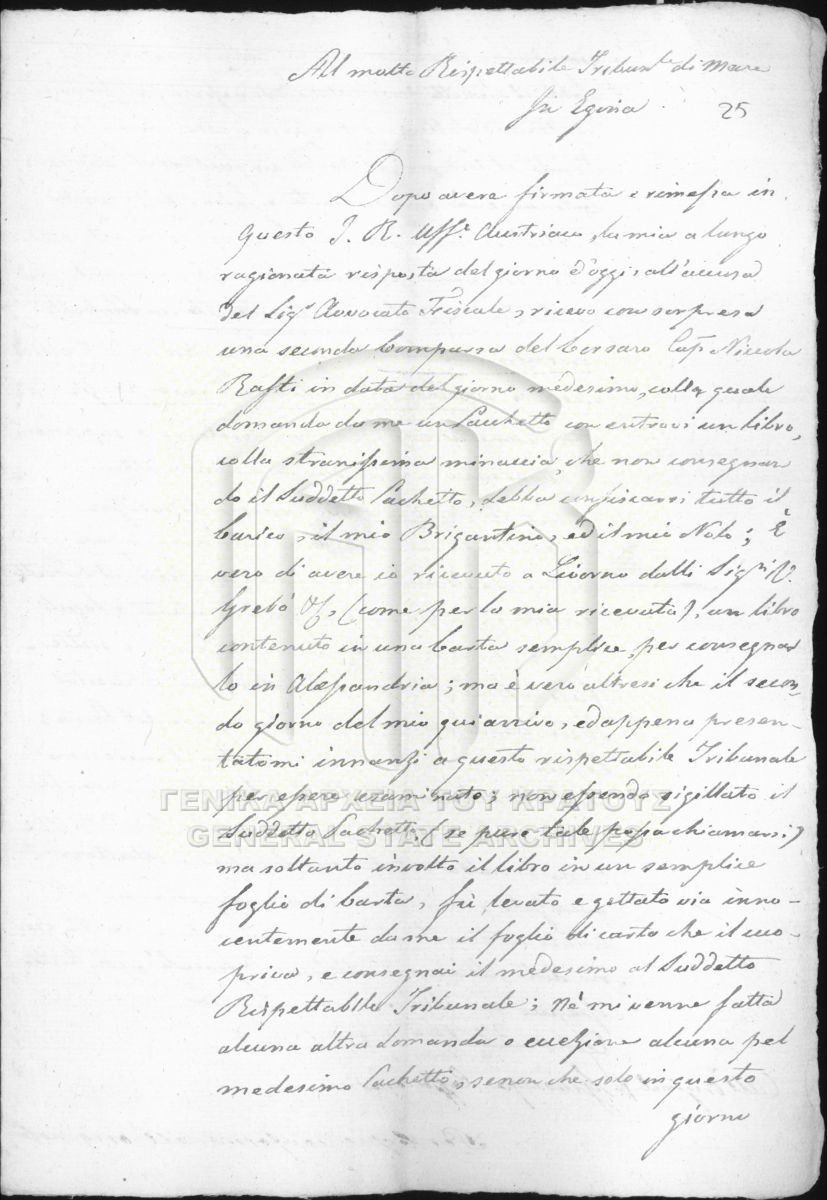 Al molto Rispettabile Tribun.le di Mare
In Egina
25
Dopo avere firmata e rimessa in
questo I. R. Uff.o Austriaco, la mia a lungo
ragionata risposta del giorno d'oggi, all'accusa
del Sig.r Avvocato Friscale, ricevo con sorpresa
una seconda Comparsa del Corsaro Cap. Niccola
Rafti in data del giorno medesimo, colla quale
domanda da me un Pacchetto con entrovi un libro,
colla stranissima minaccia, che non consegnan
do il Suddetto Pachetto, debba confiscarsi tutto il
Carico, il mio Brigantino, ed il mio Nolo; È
vero di avere io ricevuto a Livorno dalli Sig.ri V.
Grebò (come per la mia ricevuta), un libro
contenuto in una Carta semplice, per consegnar
lo in Alessandria; ma è vero altresì che il secon-
do giorno del mio qui arrivo, ed appena presen-
tatomi innanzi a questo rispettabile Tribunale
per essere esaminato; non essendo sigillato il
Suddetto Pachetto, (se pure tale possa chiamarsi)
ma soltanto involto il libro in un semplice
foglio di Carta, fù levato e gettato via inno-
centemente da me il foglio di carta che il cuo-
priva, e consegnai il medesimo al Suddetto
Rispettabile Tribunale; Nè mi venne fatta
alcuna altra domanda o eccezione alcuna pel
medesimo Pachetto, senon che solo in questo
giorno
ΓΕΝΙΚΑ ΑΡΧΕΙΑ ΤΟΥ ΚΡΑΤΟΥΣ
GENERAL STATE ARCHIVES